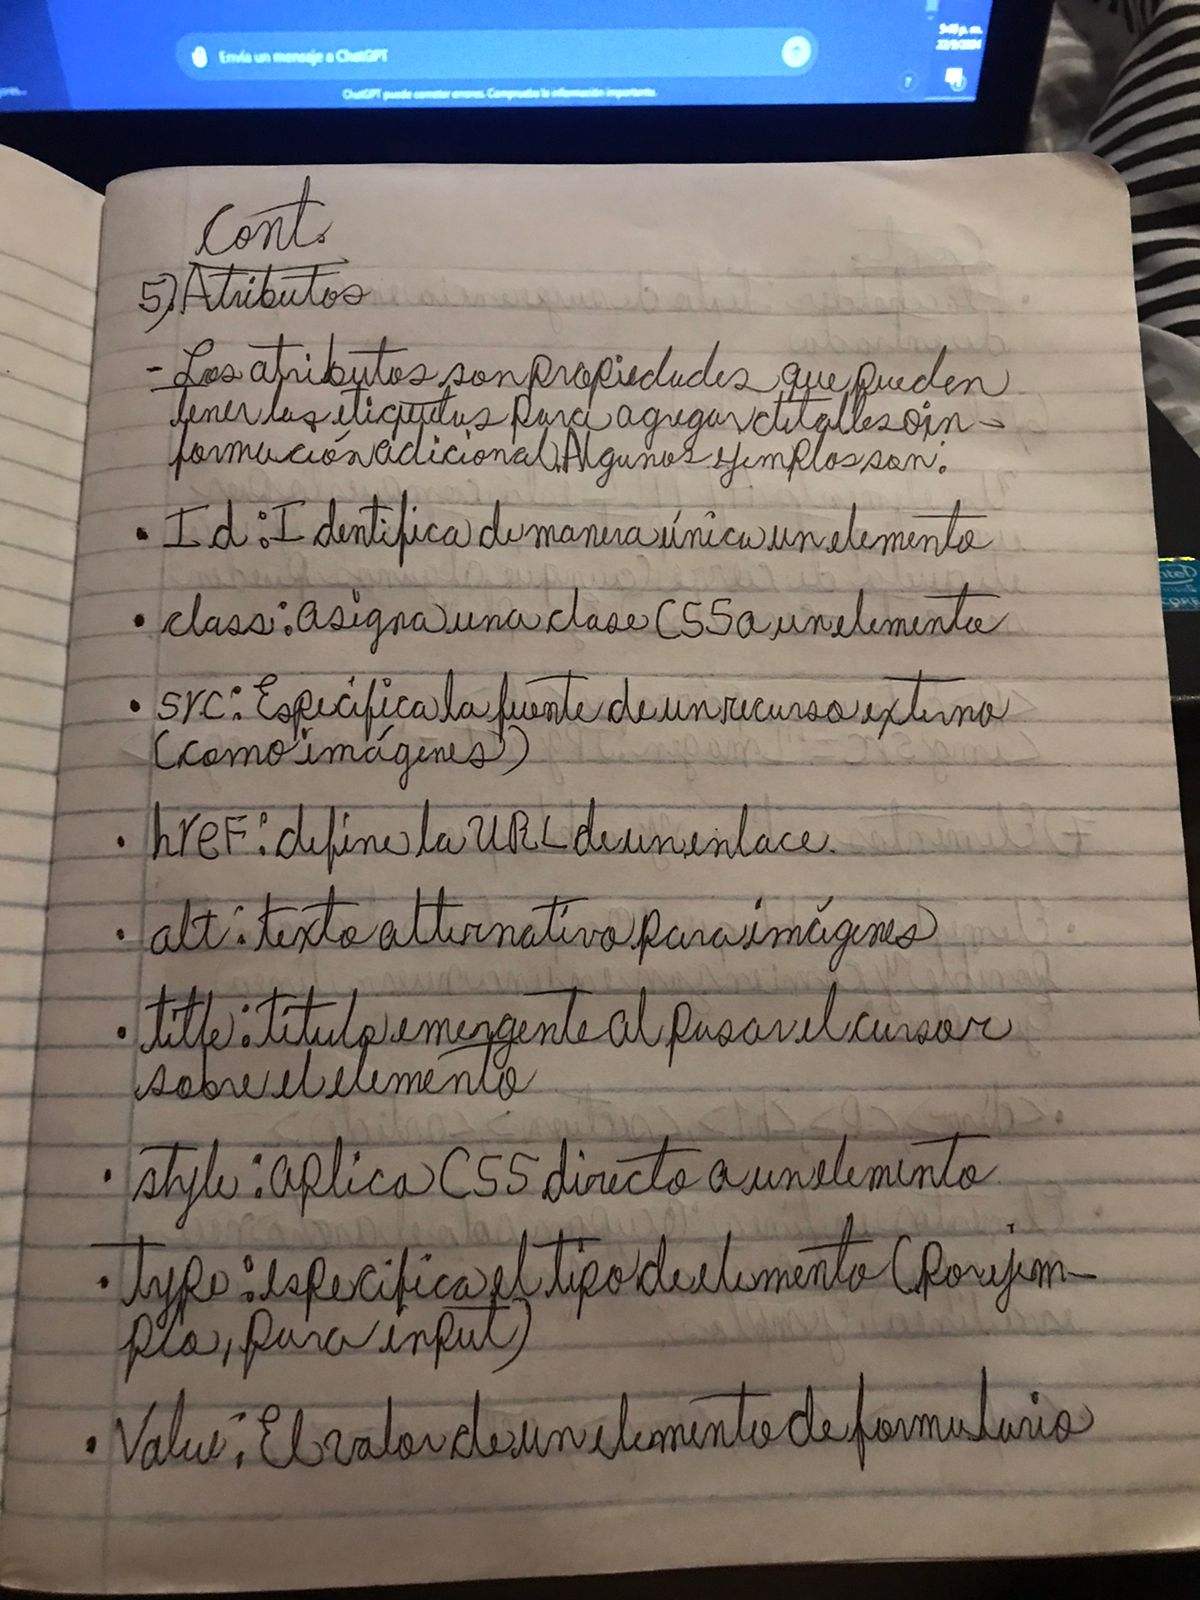 Envía un mensaje a ChatGPT
ChatGPT puede cometer errores. Comprueba la información importante.
9:40 p. m.
22/9/2024
Cont.
5) Atributos
- Los atributos son propiedades que pueden
tener las etiquetas para agregar detalles o in-
formación adicional. Algunos ejemplos son:
• Id: Identifica de manera única un elemento
• class: asigna una clase CSS a un elemento
• src: Especifica la fuente de un recurso externo
(como imágenes)
• href: define la URL de un enlace.
• alt: texto alternativo para imágenes
• title: título emergente al pasar el cursor
sobre el elemento
• style: aplica CSS directo a un elemento
• type: especifica el tipo de elemento (por ejem-
plo, para input)
• Value: El valor de un elemento de formulario
intel